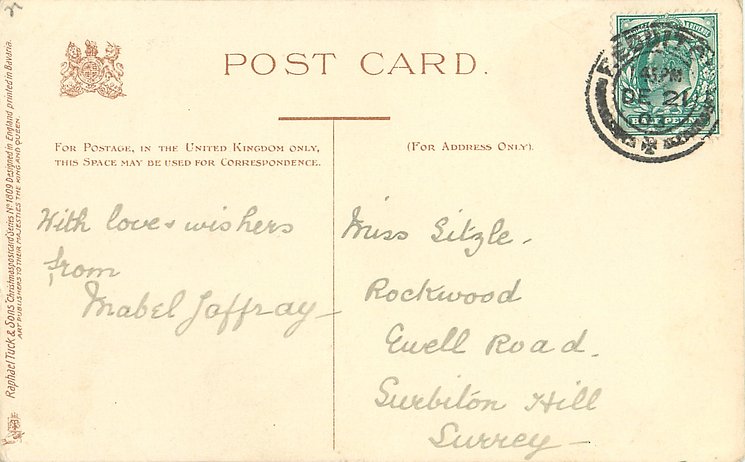 POST CARD.
FOR POSTAGE, IN THE UNITED KINGDOM ONLY,
THIS SPACE MAY BE USED FOR CORRESPONDENCE.
(FOR ADDRESS ONLY).
With love & wishers
from
Mabel Jaffray
Miss Sitzle.
Rockwood
Ewell Road.
Surbiton Hill
Surrey
HALF PENNY
45 PM
DE 21
Raphael Tuck & Sons "Christmas postcard Series No 1809 Designed in England printed in Bavaria.
ART PUBLISHERS TO THEIR MAJESTIES THE KING AND QUEEN.